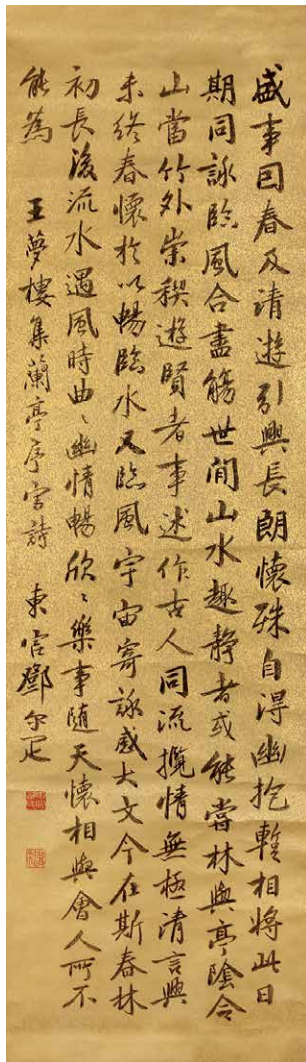 盛事因春及清遊引興長朗懷殊自得幽抱暫相將此日
期同詠臨風合盡觴世間山水趣靜者或能當林與亭陰合
山當竹外崇稧遊賢者事述作古人同流攬情無極清言興
未終春懷於以暢臨水又臨風宇宙寄詠感大文今在斯春林
初長後流水遇風時曲〻幽情暢欣〻樂事隨天懷相與會人所不
能為　王夢樓集蘭亭序字詩　東官鄧尔疋